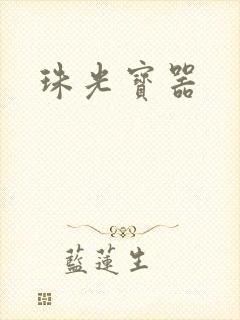 珠光寶器
藍蓮生